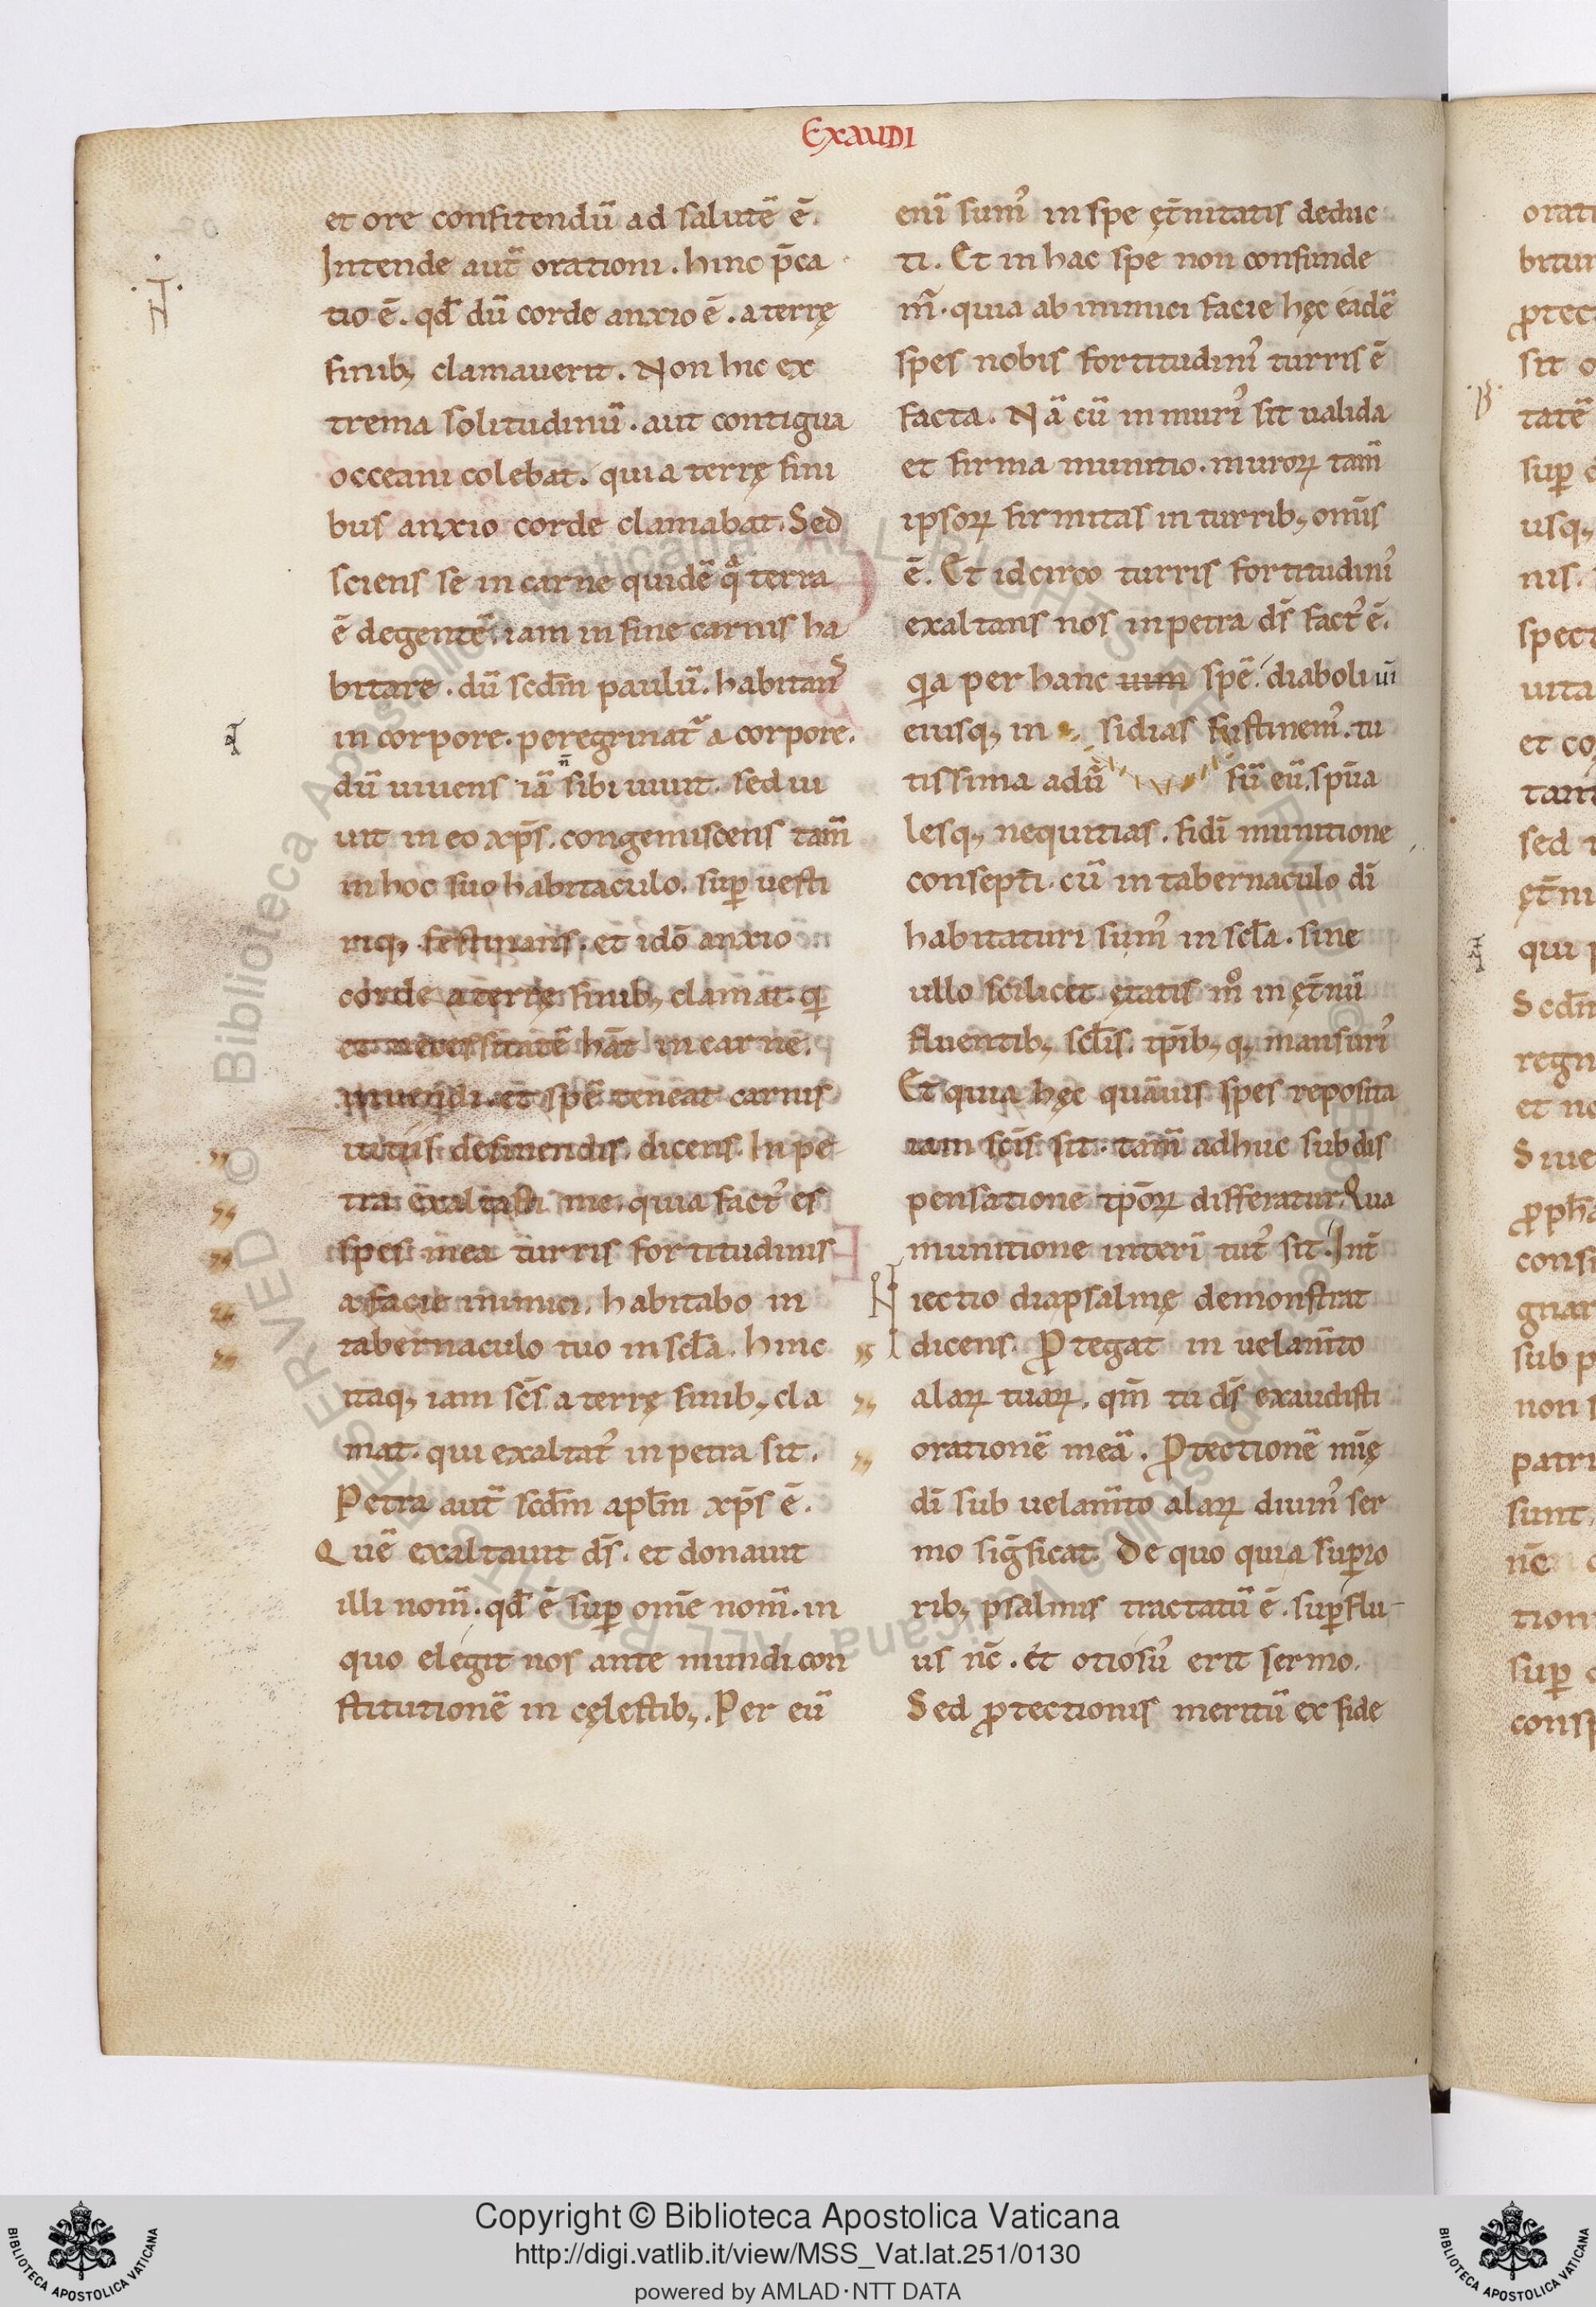 Exaudi
et ore confitendū ad salutē ē.
Intende aut̄ orationi. hinc p̄ca
tio ē. qđ dū corde anxio ē. a terrę
finib; clamauerit. Non hic ex
trema solitudinū. aut contigua
occeani colebat. quia terrę fini
bus anxio corde clamabat. Sed
sciens se in carne quidē q̄ terra
ē degentē. iam in fine carnis ha
bitare. dū scdm̄ paulū. habitans
in corpore. peregrinat᷒ a corpore.
dū uiuens iā n̄ sibi uiuit. sed ui
uit in eo xp̄s. congemiscens tam̄
in hoc suo habitaculo. suꝑ uesti
riq; festinans. et idō anxio
corde a terrę finib; clamat. q
et necessitatē hāt in carne
uiuendi. et spē teneat carnis
uitiis desinendis. dicens. In pe
tra exaltasti me. quia fact᷒ es
spes mea turris fortitudinis
a facie inimici. habitabo in
tabernaculo tuo in scl̄a. hinc
itaq; iam sc̄s a terrę finib; cla
mat. qui exaltat᷒ in petra sit.
Petra aut̄ scdm̄ apl̄m xp̄s ē.
Quē exaltauit ds̄. et donauit
illi nom̄. qđ ē suꝑ om̄e nom̄. in
quo elegit nos ante mundi con
stitutionē in cęlestib;. Per eū
enī sum᷒ in spe ęt̄nitatis deduc
ti. Et in hac spe non confunde
m̄. quia ab inimici facie hęc eadē
spes nobis fortitudinis turris ē
facta. Nā cū in muris sit ualida
et firma munitio. muroꝝ tam̄
ipsoꝝ firmitas in turrib; om̄is
ē. Et idcirco turris fortitudinis
exaltans nos in petra ds̄ fact᷒ ē.
qia per hanc uim spē. diaboli ui
eiusq; in sidias sustinem᷒. tu
tissima adū sū eū. spūa
lesq; nequitias. fidī munitione
consepti. cū in tabernaculo dī
habitaturi sum᷒ in scl̄a. sine
ullo scilicet ętatis m° in ęt̄nū
fluentib; scl̄is. tp̄ib; q; mansuri
Et quia hęc quāuis spes reposita
iam sc̄is sit. tam̄ adhuc sub dis
pensatione tp̄oꝝ differatur. Qua
munitione interī tut᷒ sit. Int̄
iectio diapsalmę demonstrat
dicens. Ꝓtegat in uelam̄to
alaꝝ tuaꝝ. qm̄ tu ds̄ exaudisti
orationē meā. Ꝓtectionē mię
dī sub uelam̄to alaꝝ diuin᷒ ser
mo siḡficat. De quo quia suꝑio
rib; psalmis tractatū ē. suꝑflu
us nc̄. et otiosus erit sermo.
Sed ꝓtectionis meritū ex fide
Copyright © Biblioteca Apostolica Vaticana
http://digi.vatlib.it/view/MSS_Vat.lat.251/0130
powered by AMLAD·NTT DATA